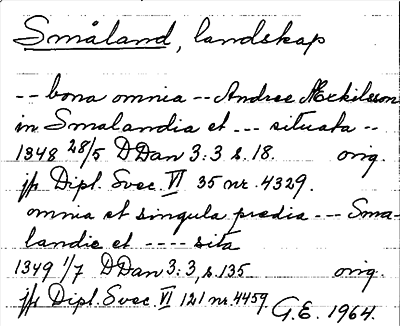 Småland, landskap
-- bona omnia -- Andree Mekilsson
in Smalandia et --- situata --
1348 28/5 DDan 3:3 s. 18. orig.
jfr Dipl. Svec. VI 35 nr. 4329.
omnia et singula predia --- Sma-
landie et ---- sita
1349 1/7 DDan 3:3, s. 135 orig.
jfr Dipl. Svec. VI 121 nr. 4459
G.E. 1964.